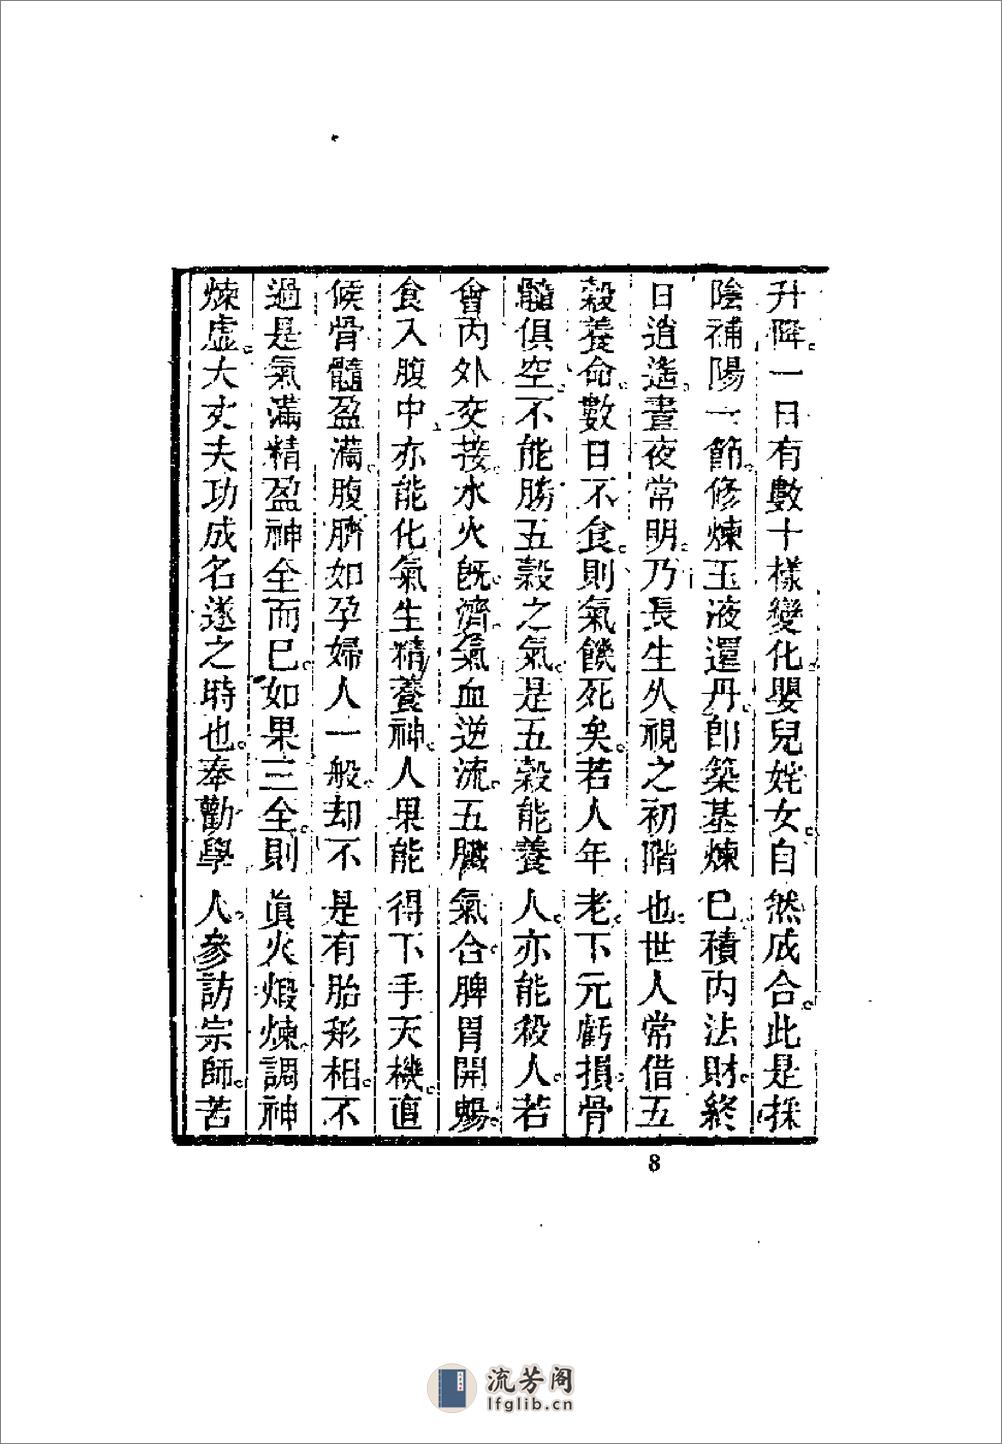 升降。一日有數十樣變化。嬰兒姹女。自然成合。此是採
陰補陽一節。修煉玉液還丹。卽築基煉己。積內法財。終
日逍遙。晝夜常明。乃長生久視之初階也。世人常借五
穀養命。數日不食。則氣餒死矣。若人年老。下元虧損。骨
髓俱空。不能勝五穀之氣。是五穀能養人。亦能殺人。若
會內外交接。水火旣濟。氣血逆流。五臟氣合。脾胃開暢。
食入腹中。亦能化氣生精養神。人果能得下手天機。直
候骨髓盈滿。腹臍如孕婦人一般。却不是有胎形相。不
過是氣滿精盈神全而已。如果三全。則眞火煅煉。調神
煉虛。大丈夫功成名遂之時也。奉勸學人。參訪宗師。苦
8
流芳阁
lfglib.cn